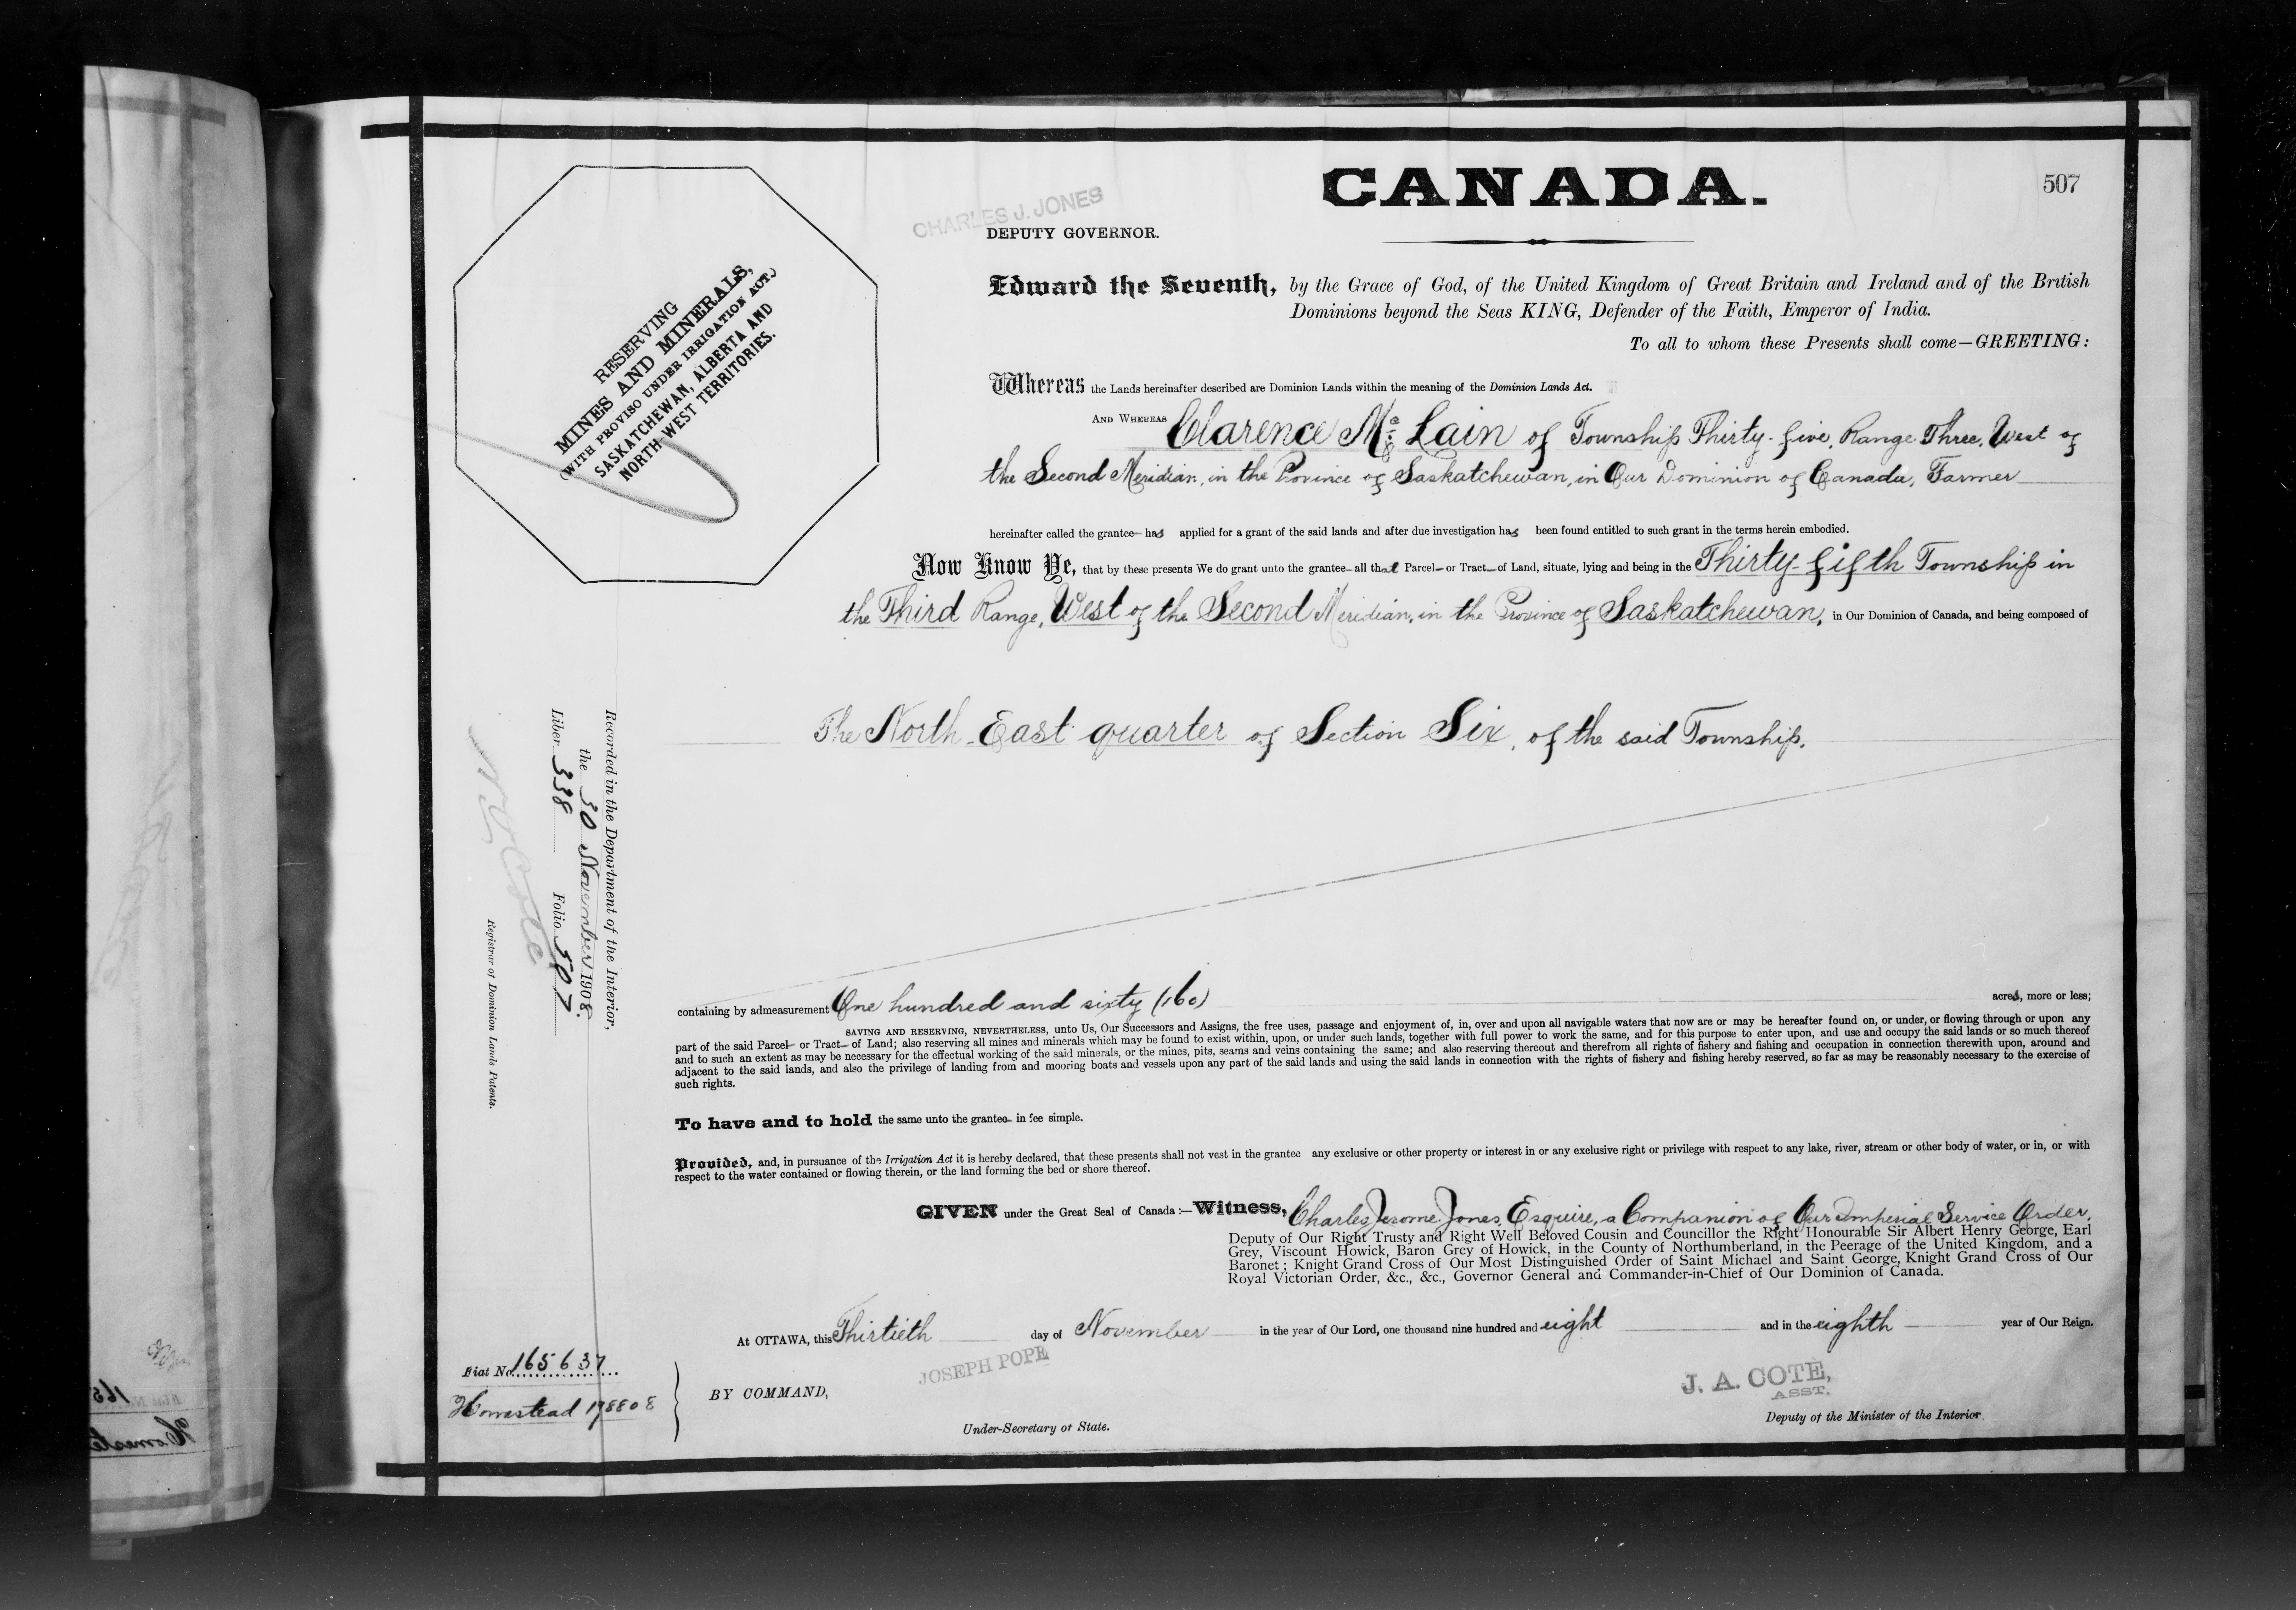 CANADA.
507
CHARLES J. JONES
DEPUTY GOVERNOR.
RESERVING
MINES AND MINERALS,
(WITH PROVISO UNDER IRRIGATION ACT.)
SASKATCHEWAN, ALBERTA AND
NORTH WEST TERRITORIES.
Edward the Seventh, by the Grace of God, of the United Kingdom of Great Britain and Ireland and of the British
Dominions beyond the Seas KING, Defender of the Faith, Emperor of India.
To all to whom these Presents shall come—GREETING:
Whereas the Lands hereinafter described are Dominion Lands within the meaning of the Dominion Lands Act.
AND WHEREAS Clarence Mc Lain of Township Thirty-five, Range Three, West of
the Second Meridian, in the Province of Saskatchewan, in Our Dominion of Canada, Farmer
hereinafter called the grantee has applied for a grant of the said lands and after due investigation has been found entitled to such grant in the terms herein embodied.
Now Know Ye, that by these presents We do grant unto the grantee all that Parcel or Tract of Land, situate, lying and being in the Thirty-fifth Township in
the Third Range, West of the Second Meridian, in the Province of Saskatchewan, in Our Dominion of Canada, and being composed of
The North East quarter of Section Six, of the said Township.
Recorded in the Department of the Interior,
the 30 November 1908.
Liber 338 Folio 507
N. O. Coté
Registrar of Dominion Lands Patents.
containing by admeasurement One hundred and sixty (160) acres, more or less;
SAVING AND RESERVING, NEVERTHELESS, unto Us, Our Successors and Assigns, the free uses, passage and enjoyment of, in, over and upon all navigable waters that now are or may be hereafter found on, or under, or flowing through or upon any
part of the said Parcel or Tract of Land; also reserving all mines and minerals which may be found to exist within, upon, or under such lands, together with full power to work the same, and for this purpose to enter upon, and use and occupy the said lands or so much thereof
and to such an extent as may be necessary for the effectual working of the said minerals, or the mines, pits, seams and veins containing the same; and also reserving thereout and therefrom all rights of fishery and fishing and occupation in connection therewith upon, around and
adjacent to the said lands, and also the privilege of landing from and mooring boats and vessels upon any part of the said lands and using the said lands in connection with the rights of fishery and fishing hereby reserved, so far as may be reasonably necessary to the exercise of
such rights.
To have and to hold the same unto the grantee in fee simple.
Provided, and, in pursuance of the Irrigation Act it is hereby declared, that these presents shall not vest in the grantee any exclusive or other property or interest in or any exclusive right or privilege with respect to any lake, river, stream or other body of water, or in, or with
respect to the water contained or flowing therein, or the land forming the bed or shore thereof.
GIVEN under the Great Seal of Canada:—Witness, Charles Jerome Jones, Esquire, a Companion of Our Imperial Service Order,
Deputy of Our Right Trusty and Right Well Beloved Cousin and Councillor the Right Honourable Sir Albert Henry George, Earl
Grey, Viscount Howick, Baron Grey of Howick, in the County of Northumberland, in the Peerage of the United Kingdom, and a
Baronet; Knight Grand Cross of Our Most Distinguished Order of Saint Michael and Saint George, Knight Grand Cross of Our
Royal Victorian Order, &c., &c., Governor General and Commander-in-Chief of Our Dominion of Canada.
At OTTAWA, this Thirtieth day of November in the year of Our Lord, one thousand nine hundred and eight and in the eighth year of Our Reign.
Fiat No. 165637
Homestead 198808
BY COMMAND,
JOSEPH POPE
Under-Secretary of State.
J. A. COTE,
ASST.
Deputy of the Minister of the Interior.